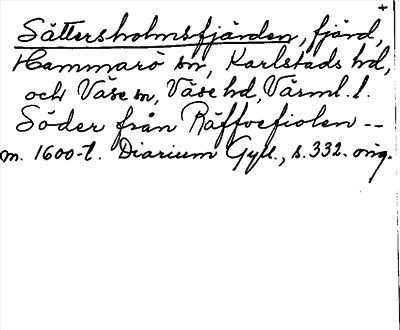 +
Sättersholmsfjärden, fjärd,
Hammarö sn, Karlstads hd,
och Väse sn, Väse hd, Värml. l.
Söder från Räffoefiolen --
m. 1600-t. Diarium Gyll., s. 332. orig.